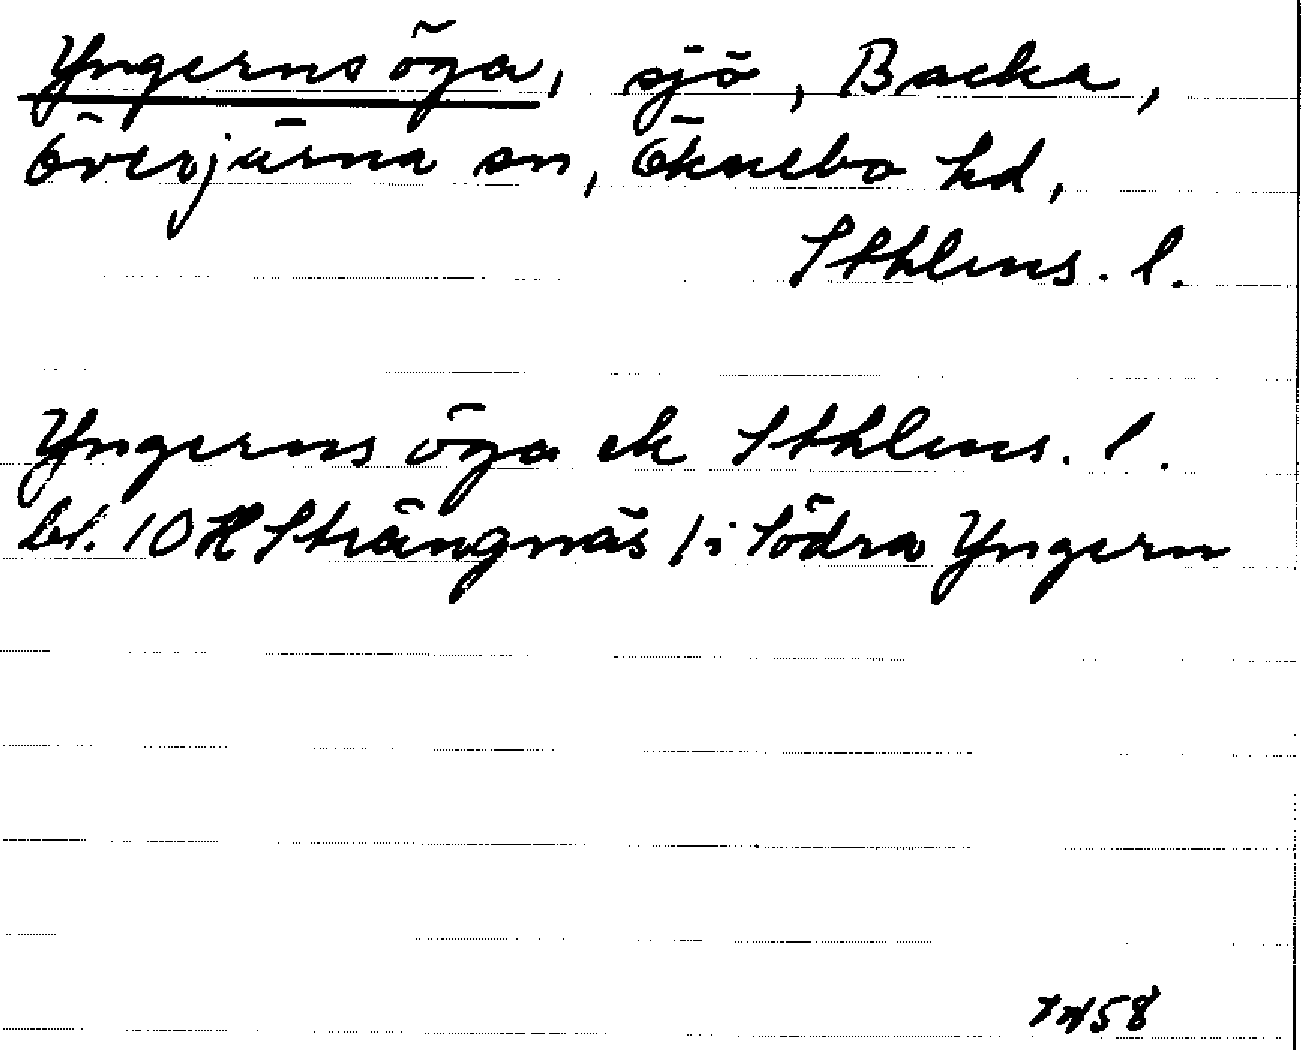 Yngerns öga, sjö, Backa,
Överjärna sn, Öknebo hd,
Sthlms. l.
Yngerns öga ek Sthlms. l.
bl. 10 H Strängnäs / i Södra Yngern
58